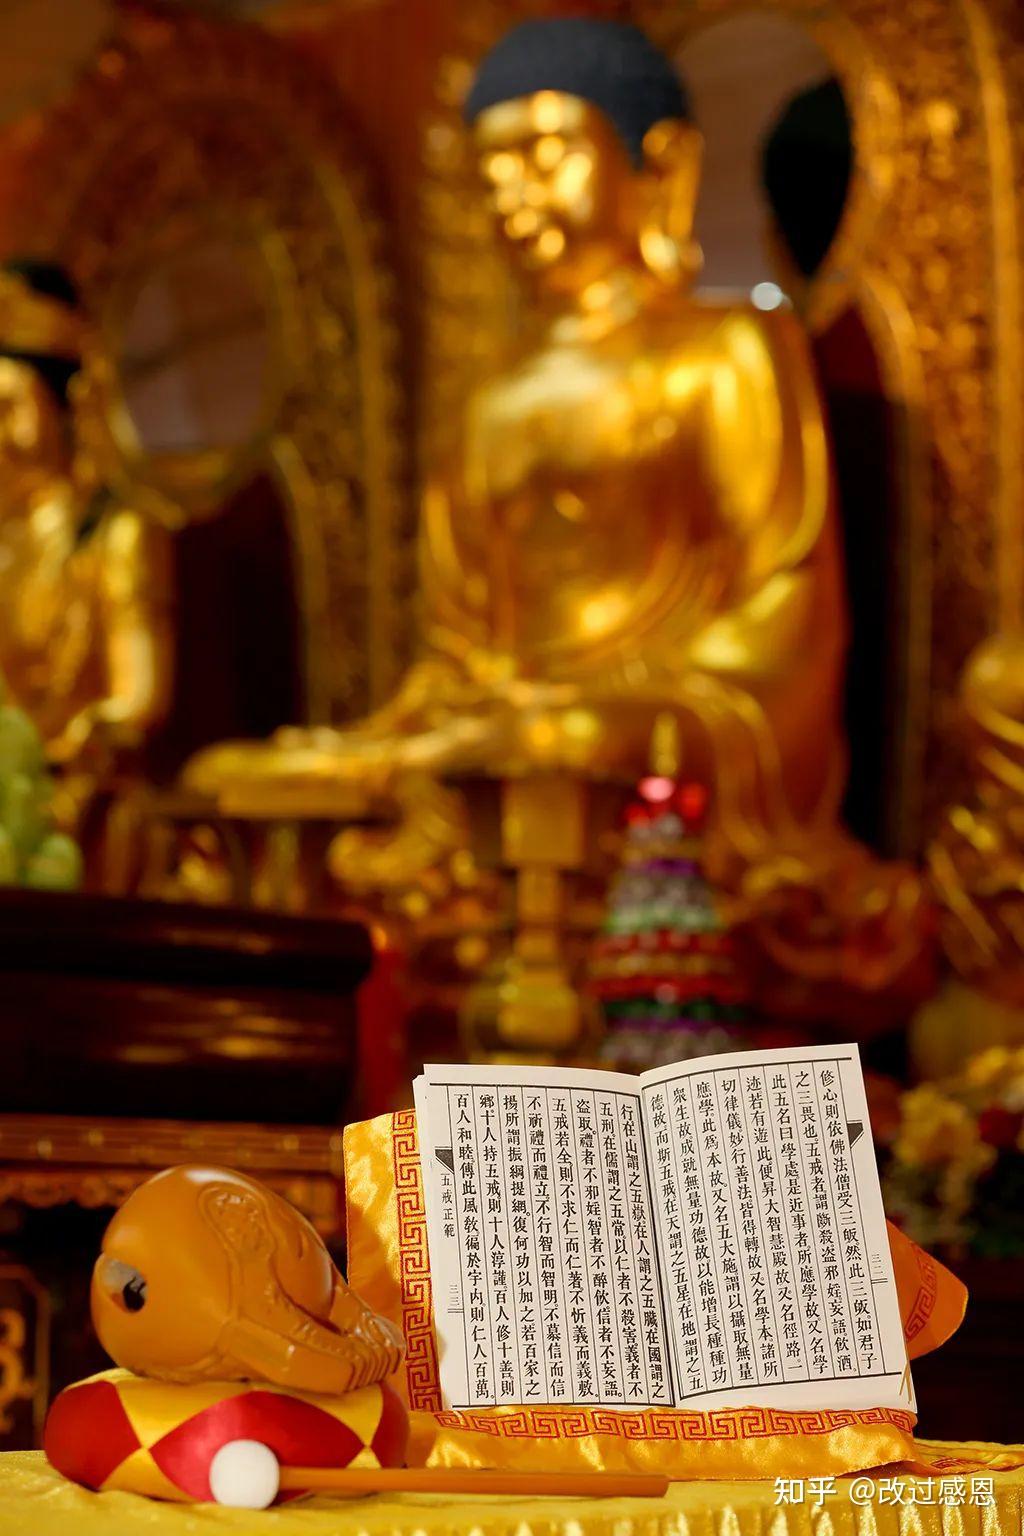 修心則依佛法僧受三皈然此三皈如君子
之三畏也。五戒者謂斷殺盜邪婬妄語飲酒
此五名曰學處是近事者所應學故又名學
迹若有遊此便昇大智慧殿故又名徑路一
切律儀妙行善法皆得轉故又名學本諸所
應學此爲本故又名五大施謂以攝取無量
衆生故成就無量功德故以能增長種種功
德故而斯五戒在天謂之五星在地謂之五
三二
行在山謂之五嶽在人謂之五臟在國謂之
五刑在儒謂之五常以仁者不殺害義者不
盜取。禮者不邪婬智者不醉飲信者不妄語。
五戒若全則不求仁而仁著不忻義而義敷。
不祈禮而禮立。不行智而智明。不慕信而信
揚所謂振綱提網。復何功以加之若百家之
鄉。十人持五戒則十人淳謹。百人修十善則
百人和睦。傳此風教徧於宇内則仁人百萬。
五戒正範
三三
知乎 @改过感恩